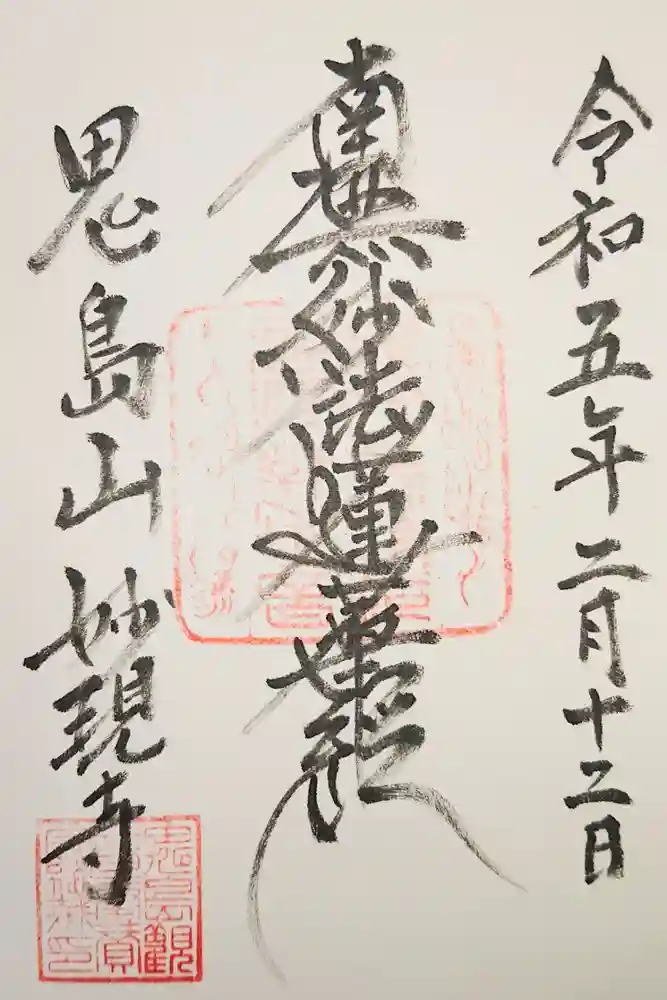 令和五年二月十二日
南無妙法蓮華經
鬼島山 妙現寺